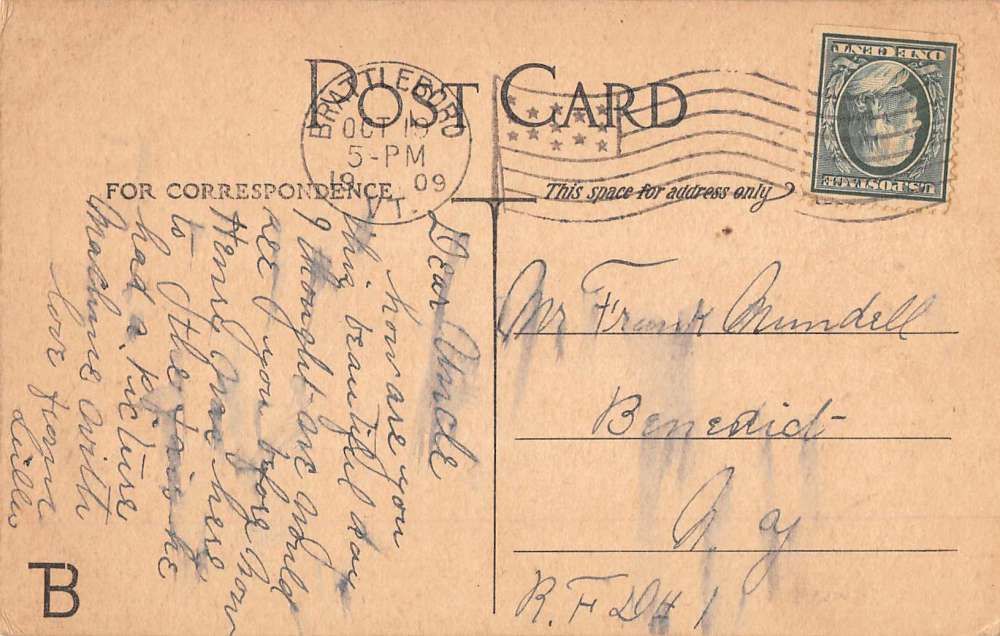 POST CARD
BRATTLEBORO
OCT 19
5-PM
19 09
VT.
U.S. POSTAGE
ONE CENT
FOR CORRESPONDENCE
This space for address only
Dear Uncle
how are you
this beautiful day
I thought we would
see you before now
Henry was here
to the fair he
had a picture
machine with
love from
Mr Frank Mundell
Benedict
N. Y
R. F D # 1
B